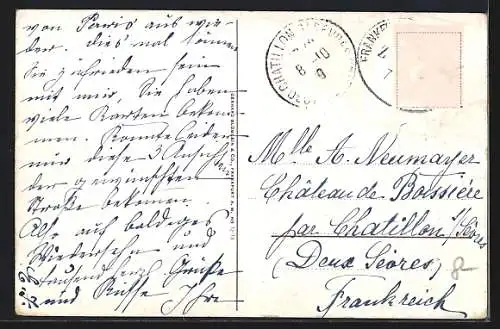 von Paris aus wie-
der. dies mal können
Sie zufrieden sein
mit mir, Sie haben
viele Karten bekom-
men. Konnte leider
mir diese 3 Ansich
der gewünschten
Straße bekomen.
Also auf baldiges
Wiedersehn und
tausend herzl. Grüße
und Küsse Ihre
CHATILLON
8 -10
FRANKF
Mlle A. Neumayer
Château de Boissière
par Chatillon s/Sèvres
(Deux Sèvres)
Frankreich
8-